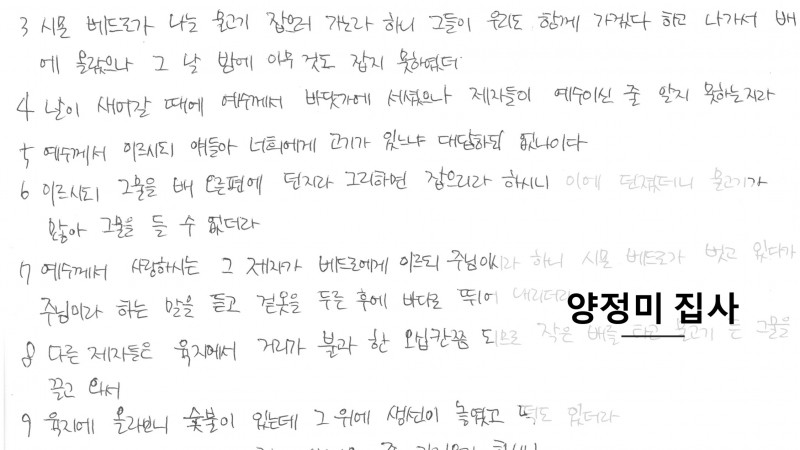 3 시몬 베드로가 나는 물고기 잡으러 가노라 하니 그들이 우리도 함께 가겠다 하고 나가서 배
에 올랐으나 그 날 밤에 아무 것도 잡지 못하였더
4 날이 새어갈 때에 예수께서 바닷가에 서셨으나 제자들이 예수이신 줄 알지 못하는지라
5 예수께서 이르시되 얘들아 너희에게 고기가 있느냐 대답하되 없나이다
6 이르시되 그물을 배 오른편에 던지라 그리하면 잡으리라 하시니 이에 던졌더니 물고기가
많아 그물을 들 수 없더라
7 예수께서 사랑하시는 그 제자가 베드로에게 이르되 주님이시라 하니 시몬 베드로가 벗고 있다가
주님이라 하는 말을 듣고 겉옷을 두른 후에 바다로 뛰어 내리더라
양정미 집사
8 다른 제자들은 육지에서 거리가 불과 한 오십칸쯤 되므로 작은 배를 타고 물고기 든 그물을
끌고 와서
9 육지에 올라보니 숯불이 있는데 그 위에 생선이 놓였고 떡도 있더라